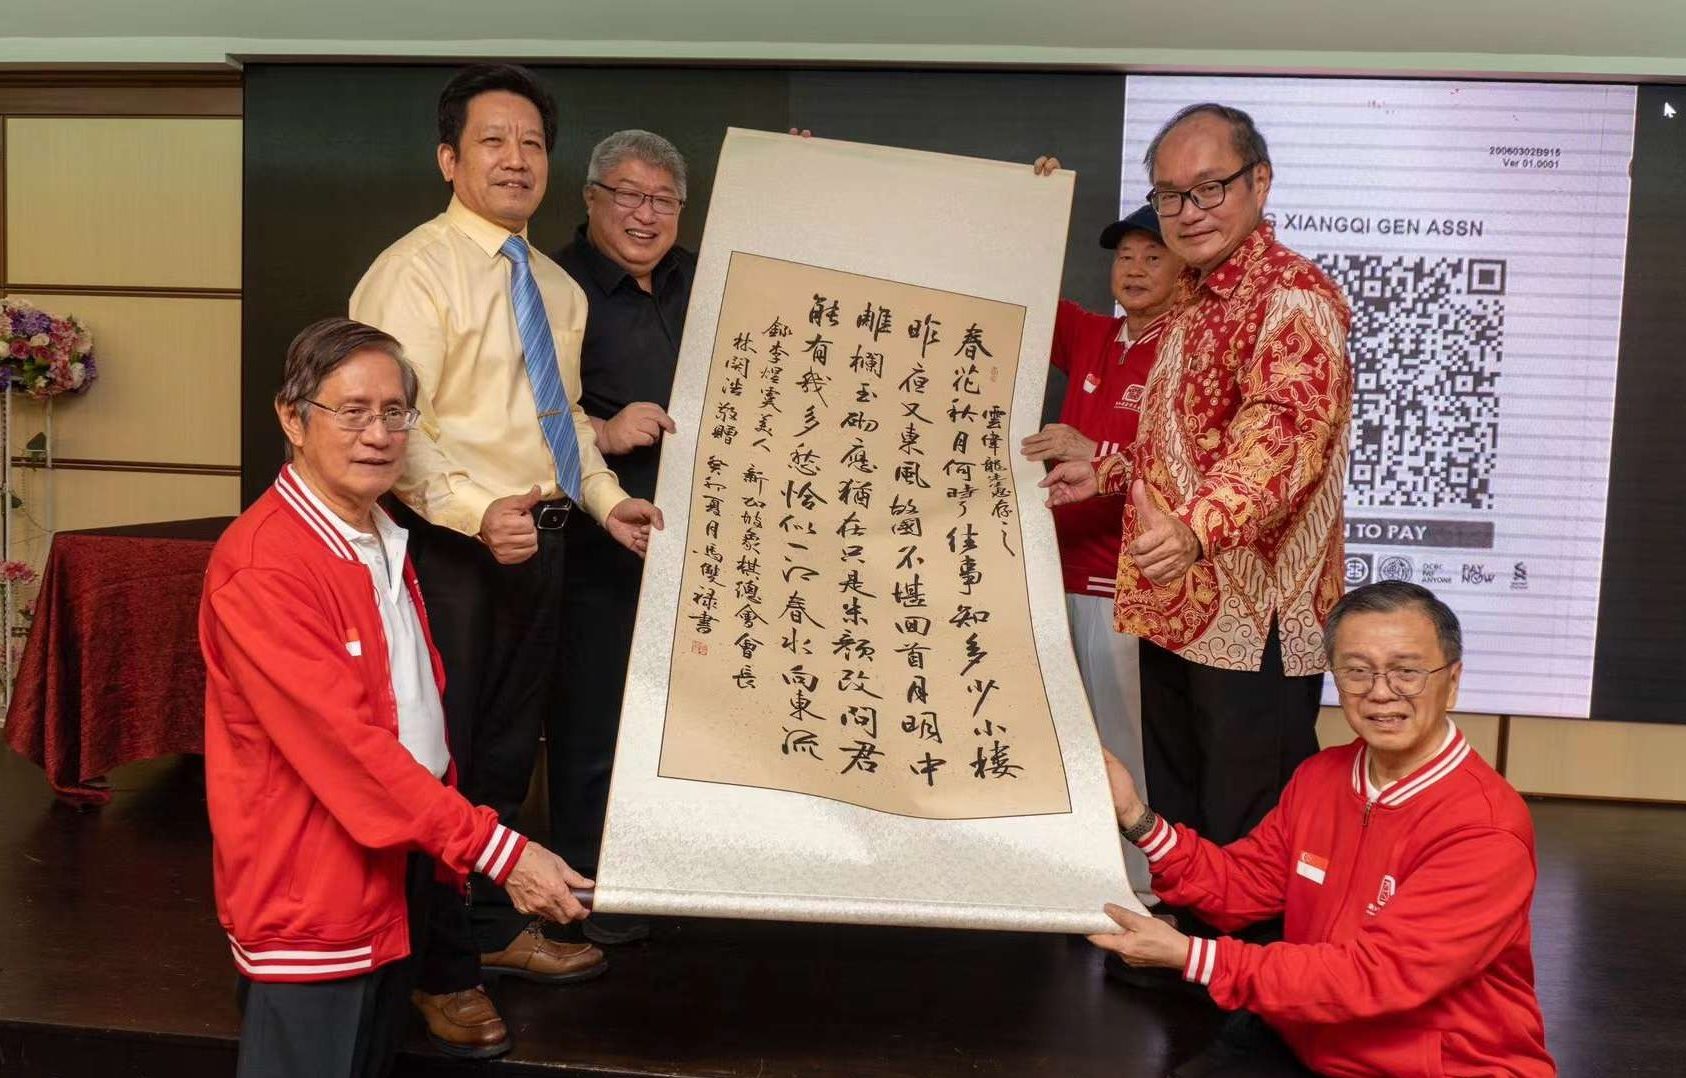 雲偉龍先生惠存之
春花秋月何時了往事知多少小樓
昨夜又東風故國不堪回首月明中
雕欄玉砌應猶在只是朱顏改問君
能有幾多愁恰似一江春水向東流
錄李煜虞美人 新加坡象棋總會會長
林關浩敬贈 癸卯夏月馬雙祿書
20060302B915
Ver 01.0001
XIANGQI GEN ASSN
TO PAY
OCBC
PAY
ANYONE
PAY
NOW